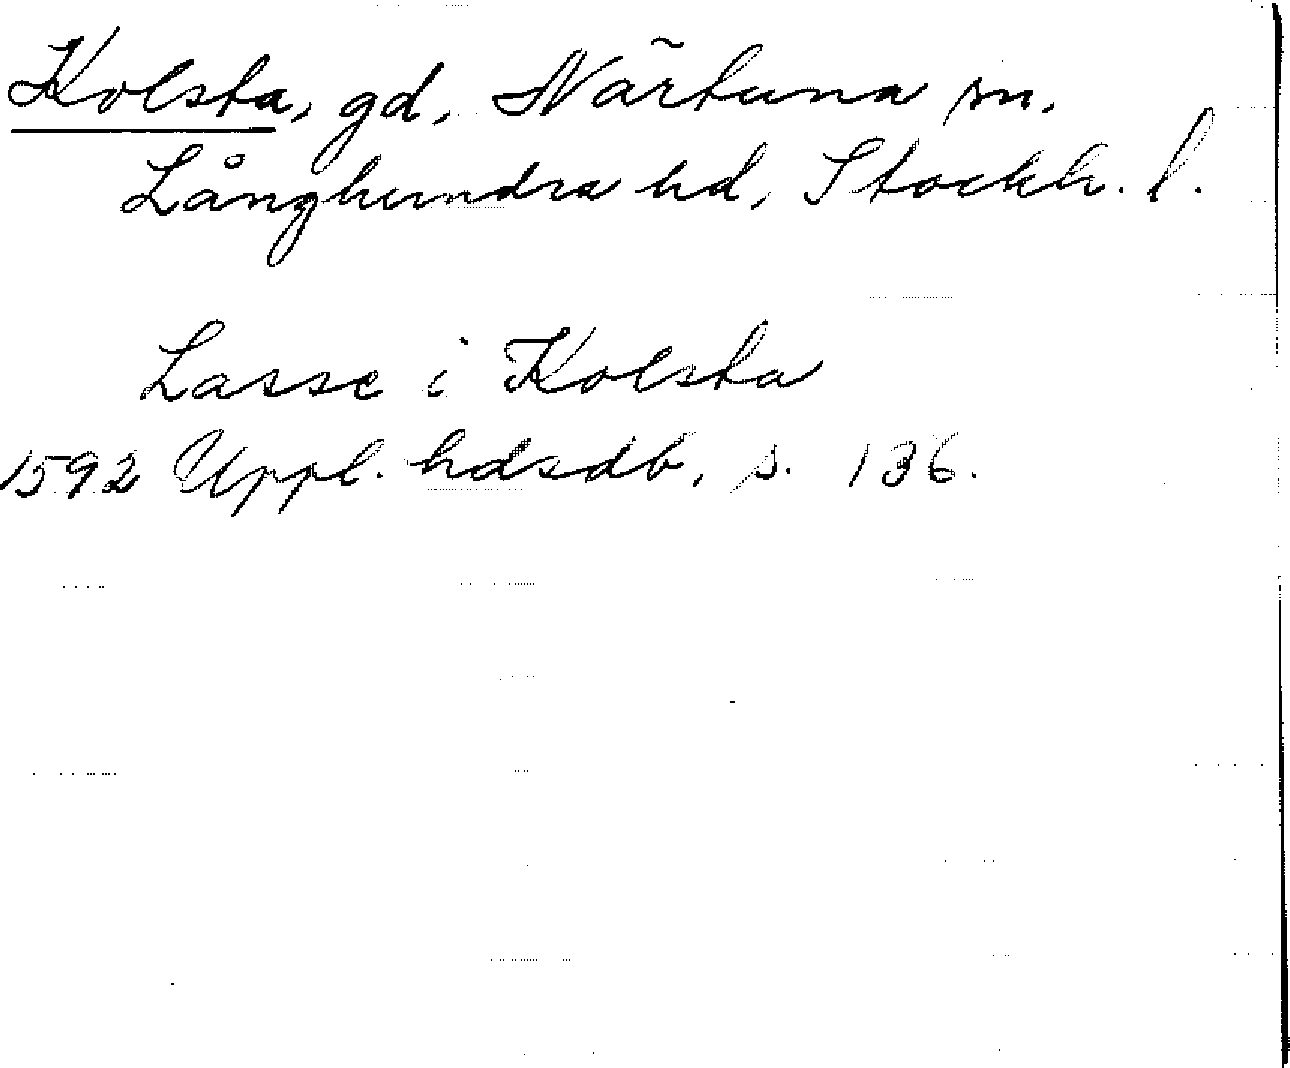 Kolsta, gd, Närtuna sn,
Långhundra hd, Stockh. l.
Lasse i Kolsta
1592 Uppl. hdsdb, s. 136.